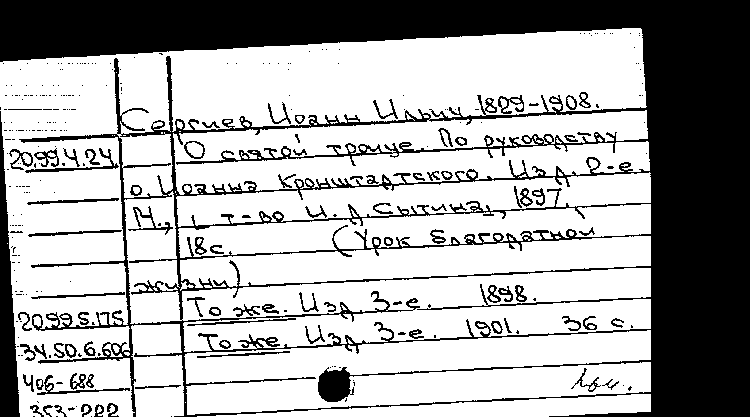 Сергиев, Иоанн Ильич, 1829-1908.
20.99.4.24 О святой троице. По руководству
о. Иоанна Кронштадтского. Изд. 2-е.
М., т-во И. Д. Сытина, 1897.
18 с. (Урок благодатной
жизни).
20.99.5.175 То же. Изд. 3-е. 1898.
34.50.6.606 То же. Изд. 3-е. 1901. 36 с.
406-688
353-222